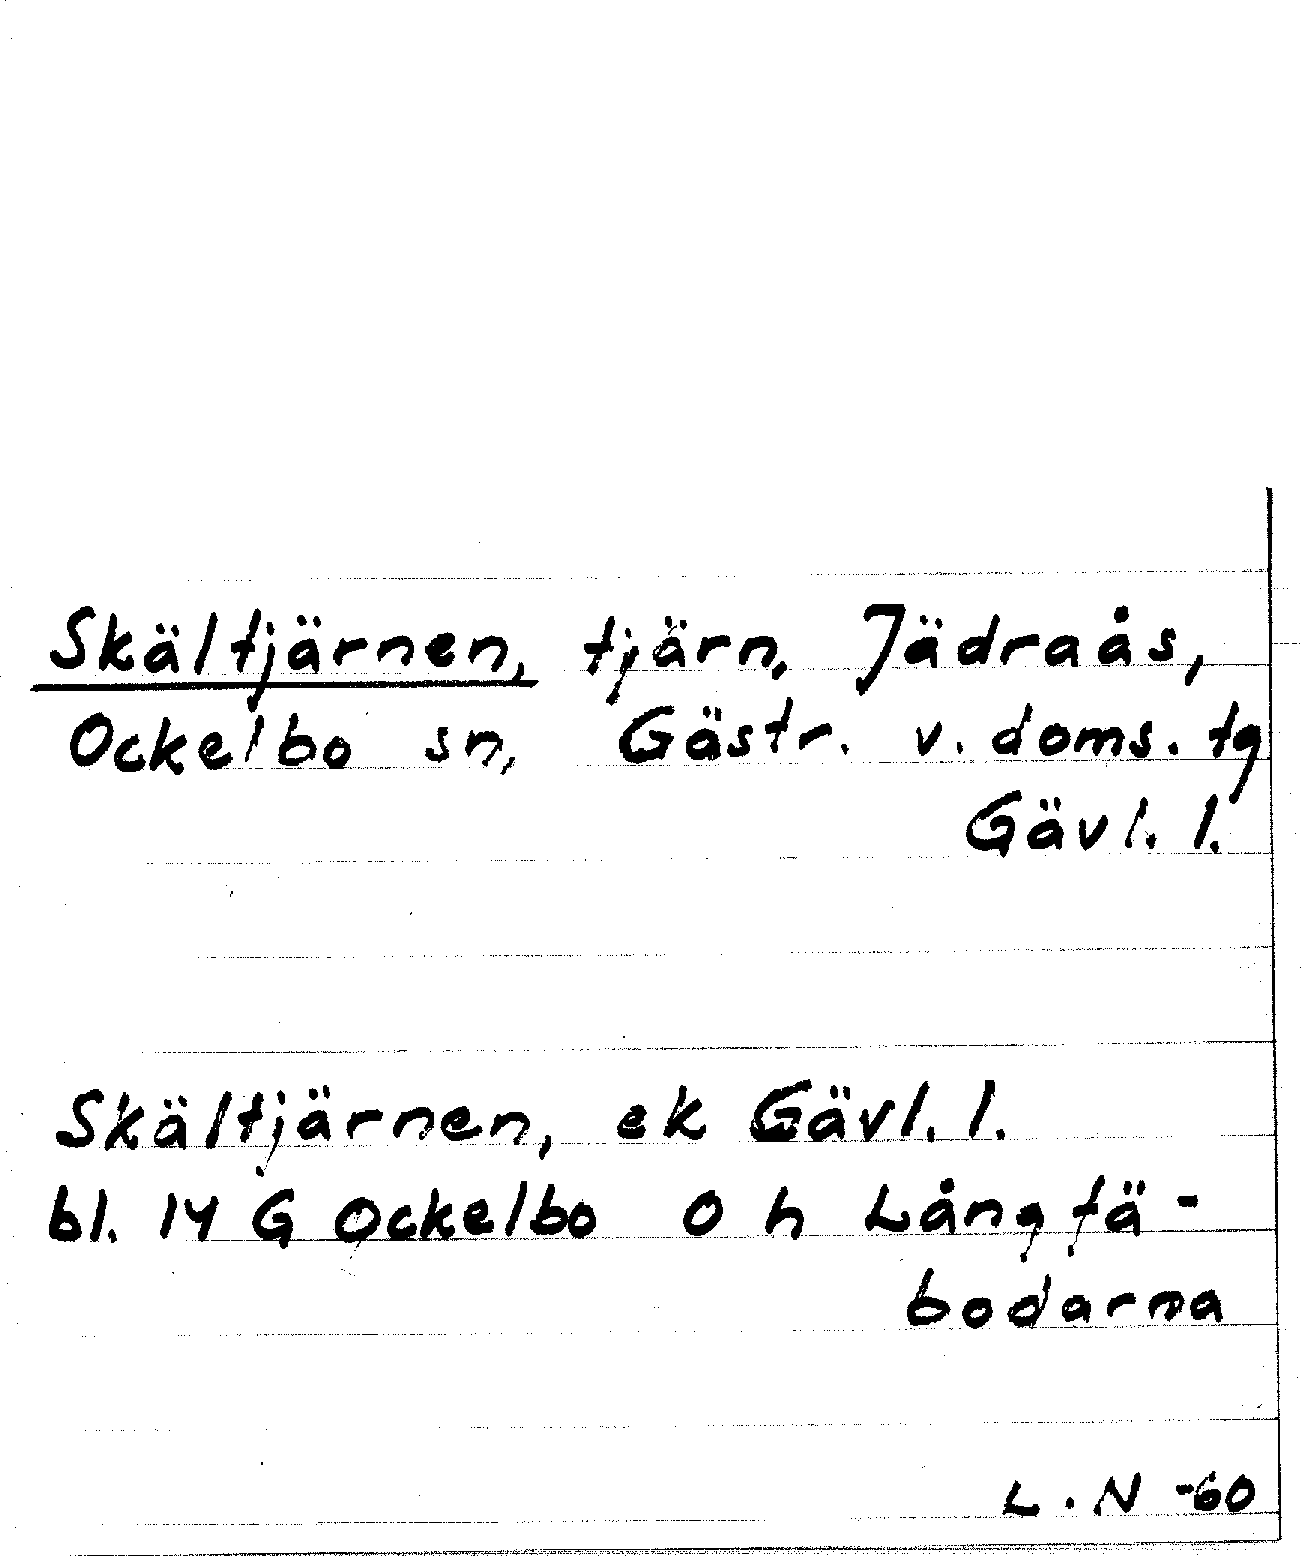 Skältjärnen, tjärn, Jädraås,
Ockelbo sn, Gästr. v. doms. tg
Gävl. l.
Skältjärnen, ek Gävl. l.
bl. 14 G Ockelbo o h Långfä-
bodarna
L. N -60